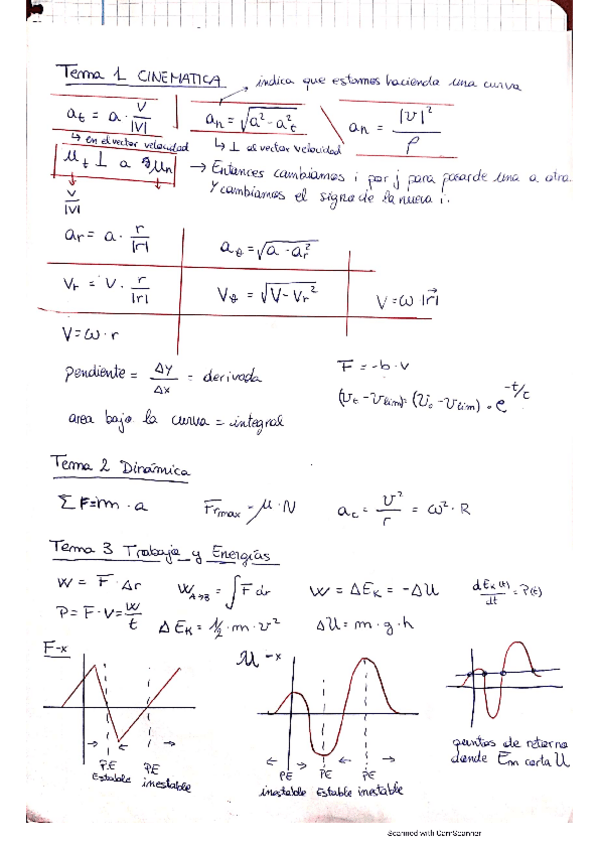 Tema 1 CINEMATICA
indica que estamos hacienda una curva
at = a · v/|v|
an = √a² - at²
an = |v|²/ρ
↳ en el vector velocidad
↳ ⊥ as vector velocidad
μt ⊥ a μn
→ Entonces cambiamos i por j para pasar de una a otra.
Y cambiamos el signo de la nueva i.
v/|v|
ar = a · r/|r|
aθ = √a - ar²
Vr = v · r/|r|
Vθ = √V - Vr²
V = ω |r|
V = ω · r
pendiente = Δy/Δx = derivada
F = -b · v
(vt - vlim) = (v0 - vlim) · e^-t/c
area bajo la curva = integral
Tema 2 Dinámica
ΣF = m · a
Frmax = μ · N
ac = v²/r = ω² · R
Tema 3 Trabajo y Energías
W = F · Δr
WA→B = ∫F dr
W = ΔEK = -ΔU
dEK(t)/dt = P(t)
P = F · V = W/t
ΔEK = 1/2 · m · v²
ΔU = m · g · h
F-x
U-x
P.E estable
PE inestable
PE inestable
PE Estable
PE inestable
puntos de retorno
donde Em corta U
Scanned with CamScanner